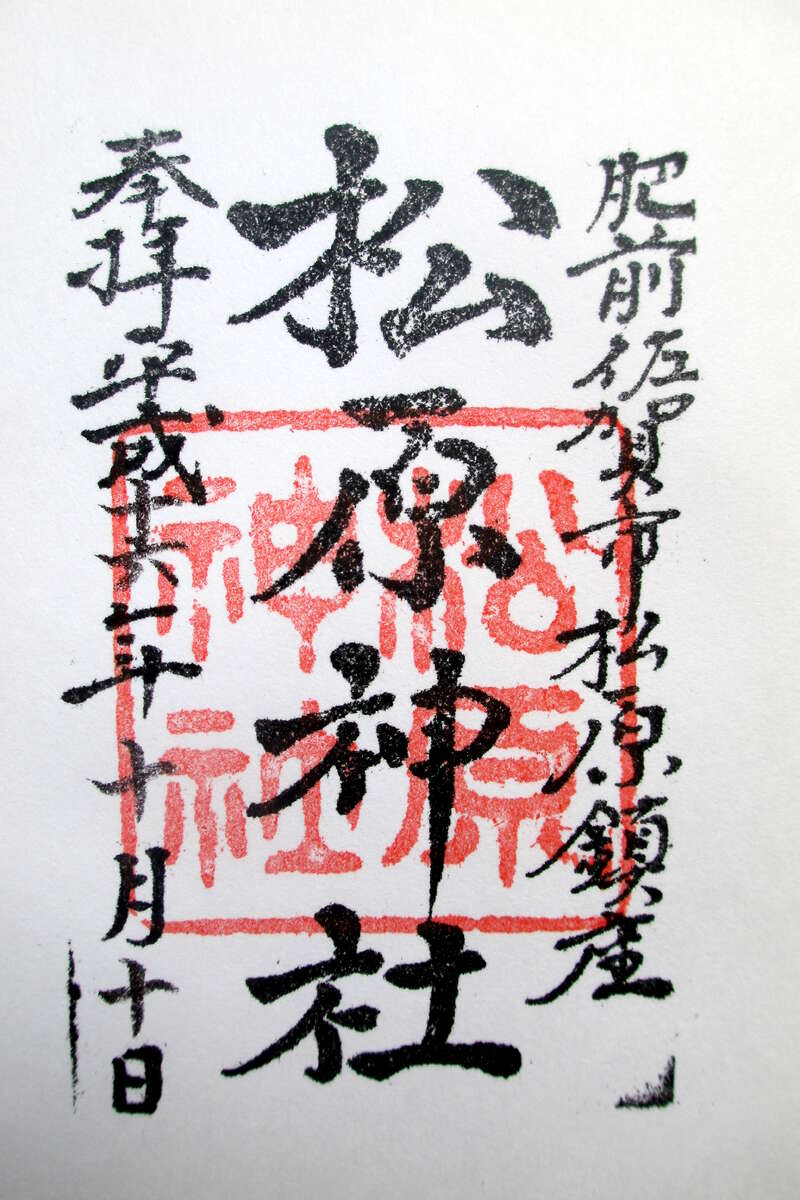 肥前佐賀市松原鎮座
松原神社
奉拝 平成十六年十月十日
松原
神社